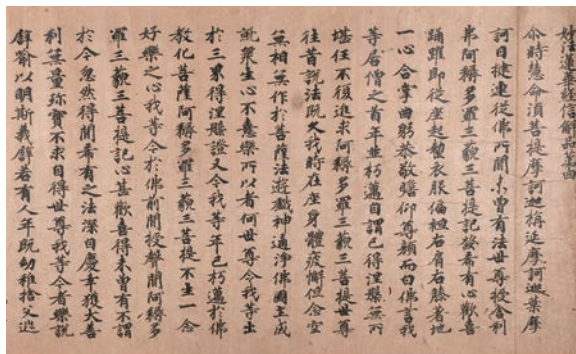 妙法蓮華經信解品第四
尒時慧命須菩提摩訶迦栴延摩訶迦葉摩
訶目揵連從佛所聞未曾有法世尊授舍利
弗阿耨多羅三藐三菩提記發希有心歡喜
踊躍即從座起整衣服偏袒右肩右膝著地
一心合掌曲躬恭敬瞻仰尊顏而白佛言我
等居僧之首年並朽邁自謂已得涅槃無所
堪任不復進求阿耨多羅三藐三菩提世尊
往昔說法既久我時在座身體疲懈但念空
無相無作於菩薩法遊戲神通淨佛國土成
就衆生心不憙樂所以者何世尊令我等出
於三界得涅槃證又今我等年已朽邁於佛
教化菩薩阿耨多羅三藐三菩提不生一念
好樂之心我等今於佛前聞授聲聞阿耨多
羅三藐三菩提記心甚歡喜得未曾有不謂
於今忽然得聞希有之法深自慶幸獲大善
利無量珎寶不求自得世尊我等今者樂說
譬喻以明斯義譬若有人年既幼稚捨父逃